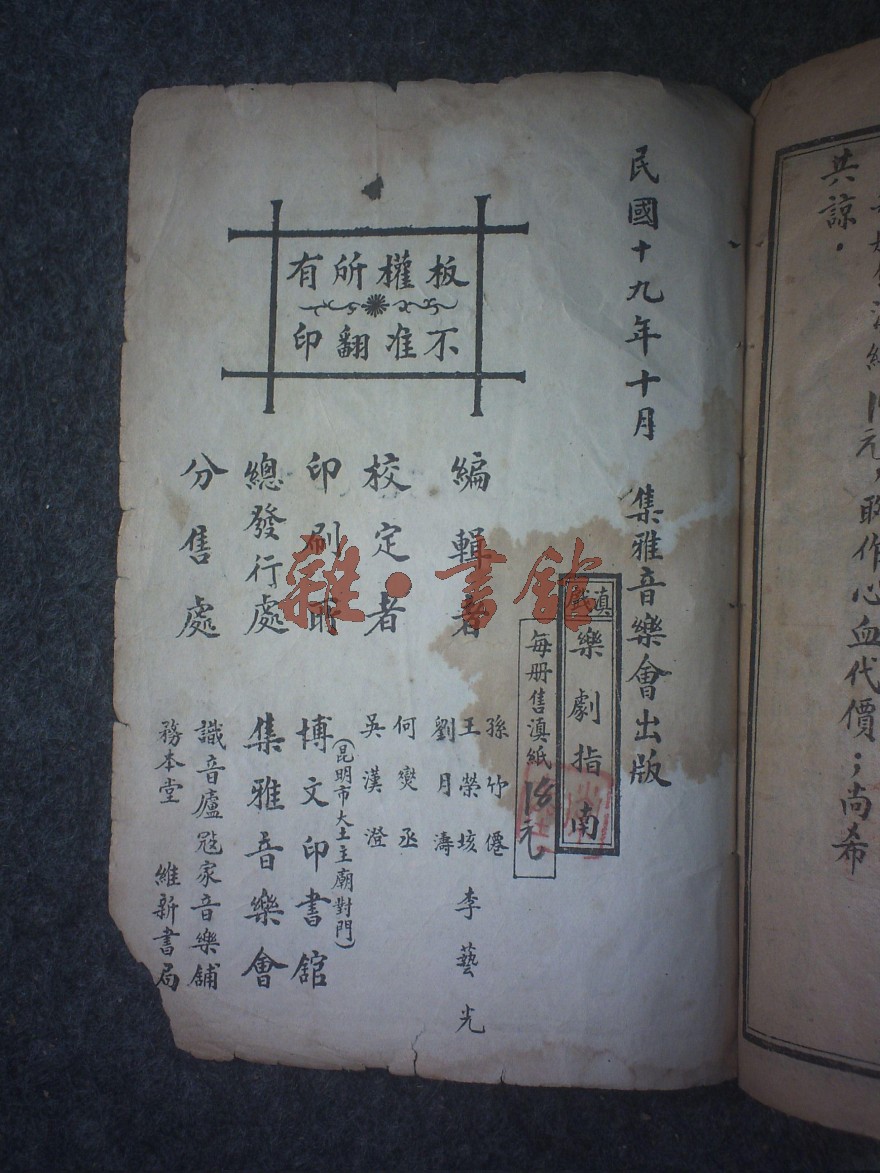 共諒．
元，聊作心血代價；尚希
民國十九年十月　集雅音樂會出版
滇戲
樂劇指南
每册售滇紙18元
板權所有
不准翻印
編輯者　孫竹僊　王榮垓　劉月濤　李藝光
校定者　何爕丞　吳漢澄
印刷所　博文印書舘
(昆明市大土主廟對門)
總發行處　集雅音樂會
分售處　識音廬　寇家音樂舖
務本堂　維新書局
雜·書舘